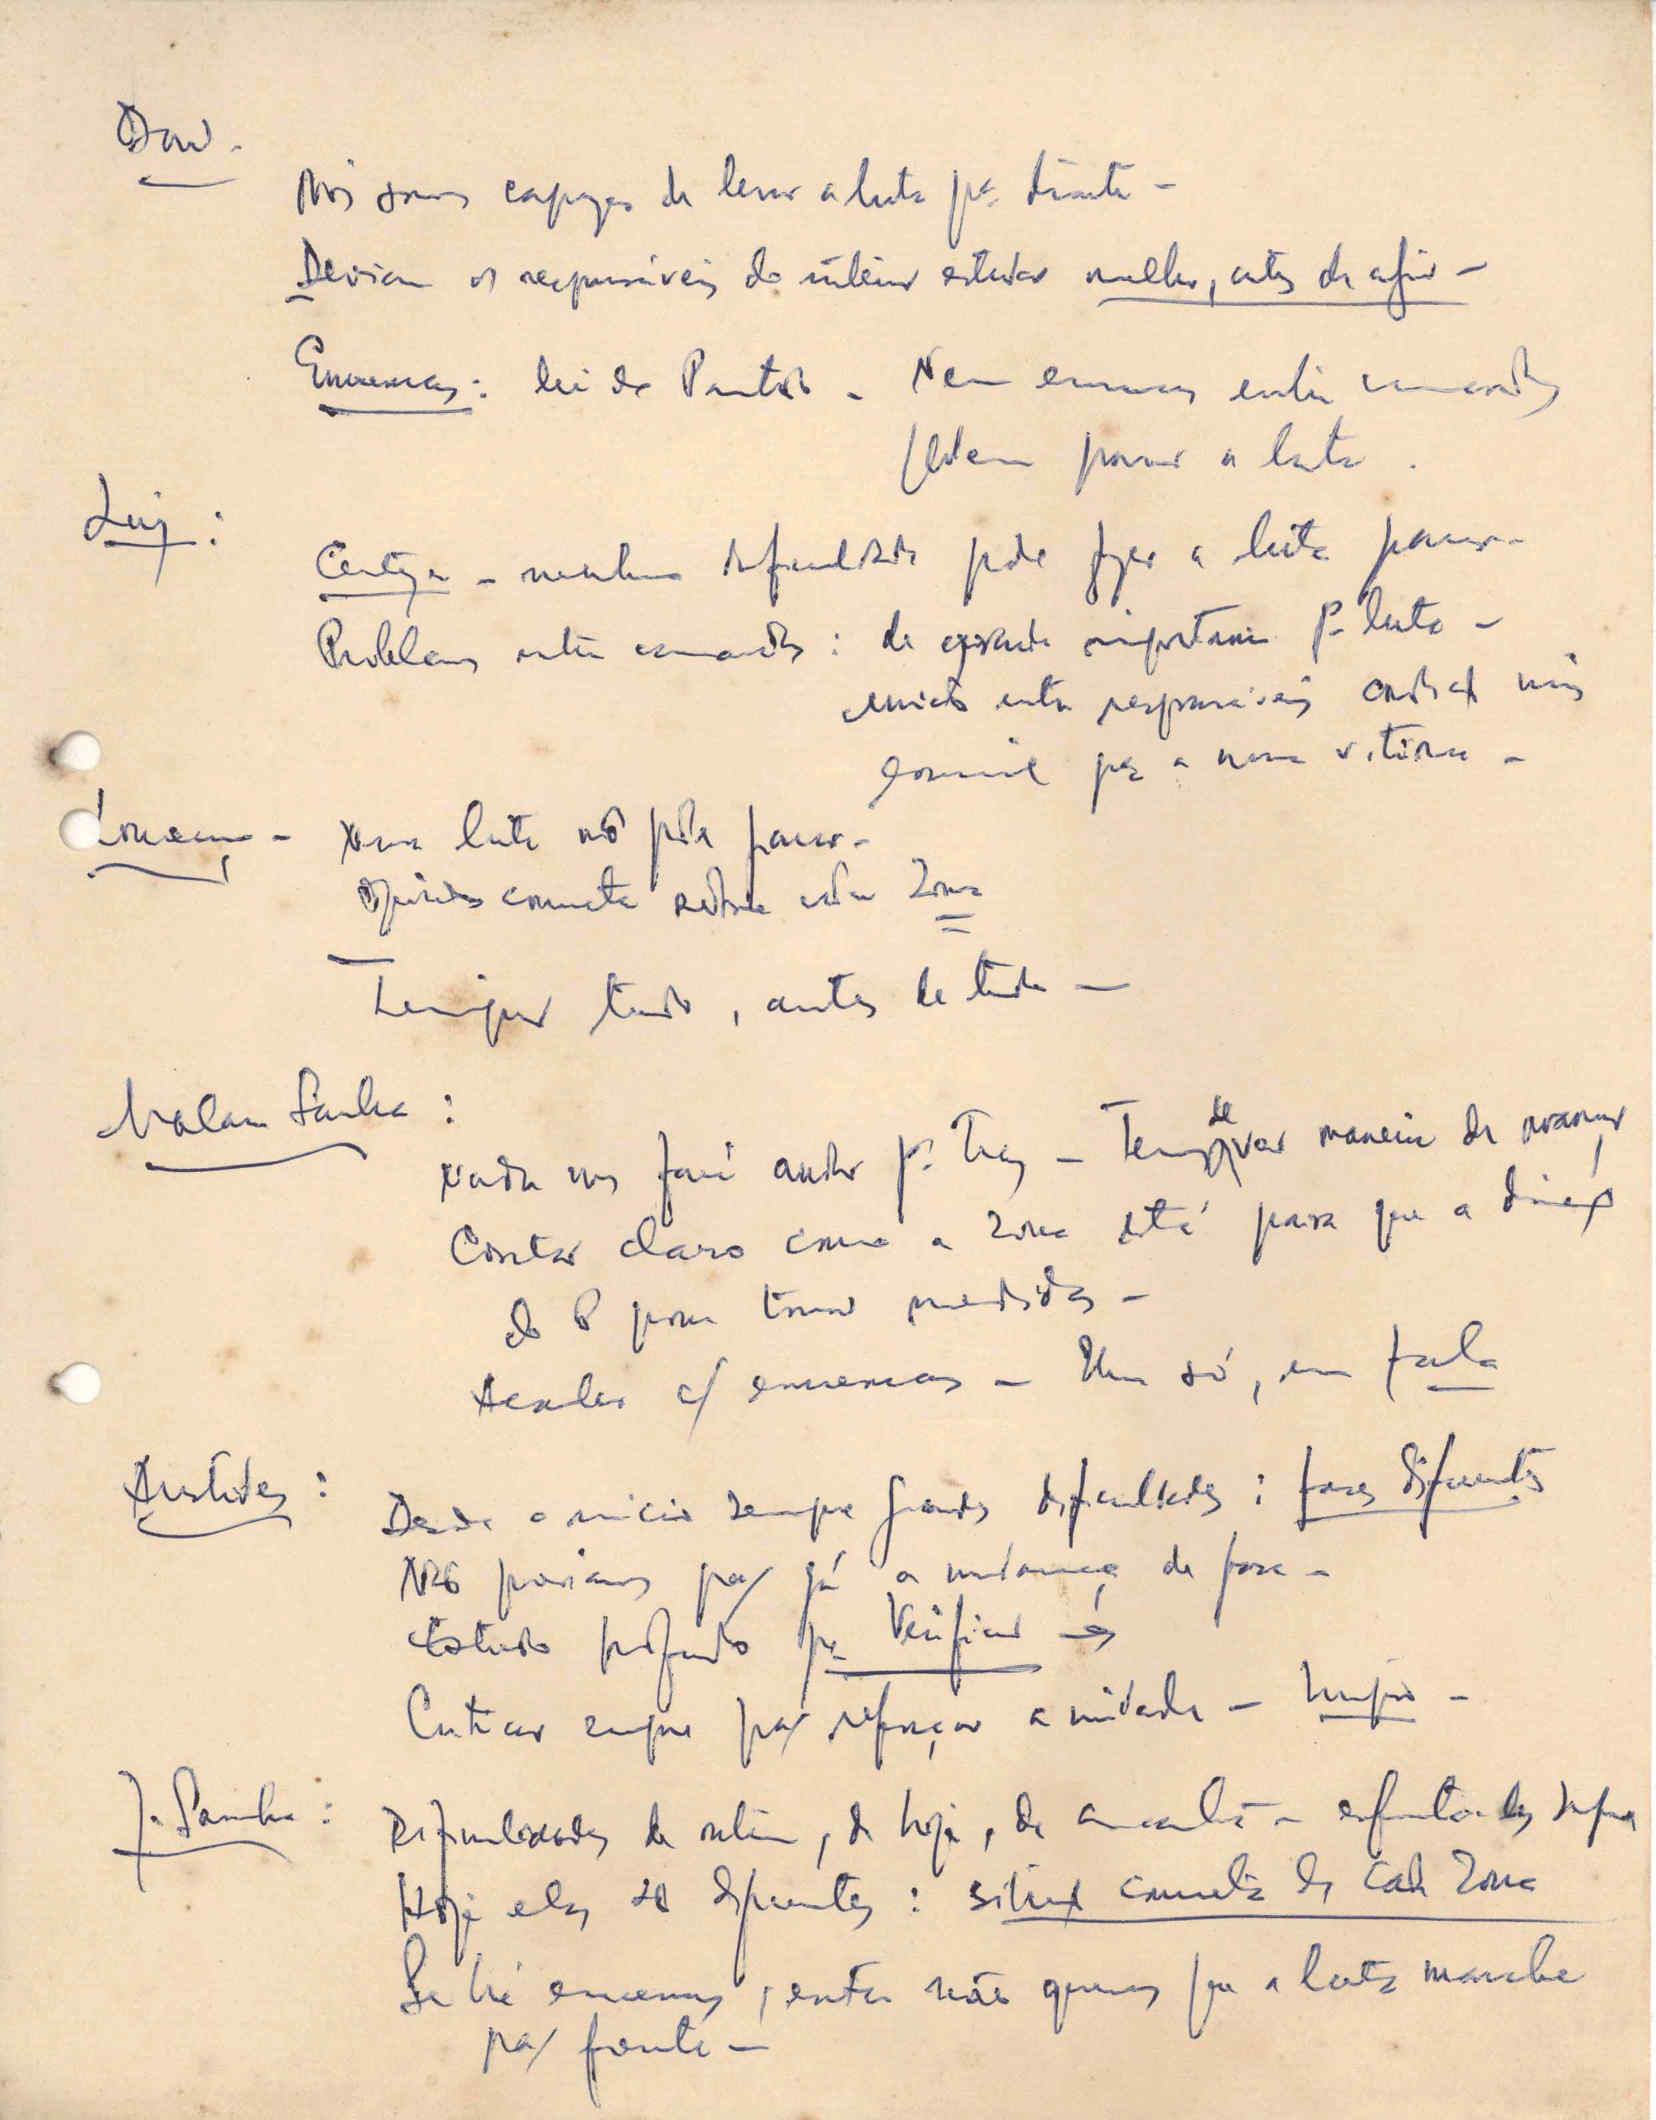 Nós somos capazes de levar a luta pª diante -
Deviam os responsáveis do interior estudar melhor, antes de agir -
: lei do Partido - Nem entre camaradas
Podem parar a luta.
Luiz :
Certeza - nenhuma dificuldade pode fazer a luta parar -
Problemas entre camaradas : de grande importancia pª luta -
entre responsáveis
pª a nossa vitória -
Lourenço - Nossa luta não pode parar -
concreta sobre cada Zona
Limpar tudo, antes de tudo -
Malam Sanha :
Nada nos fará andar pª Trás - Temos de ver maneira de avançar
Contar claro como a zona está para que a direcç
do P possa tomar medidas -
Acabar c/ - Um só, em fala
Aristides :
Desde o inicio sempre grandes dificuldades : fases diferentes
Não pa/ já a mudança de fase -
Estudo profundo pª Verificar →
Criticar sempre pa/ reforçar a unidade - Limpar -
J. Sambu :
Dificuldades de ontem, de hoje, de amanhã -
Hoje elas são diferentes : concreta de cada Zona
Se há, então não queremos que a luta marche
pa/ frente -